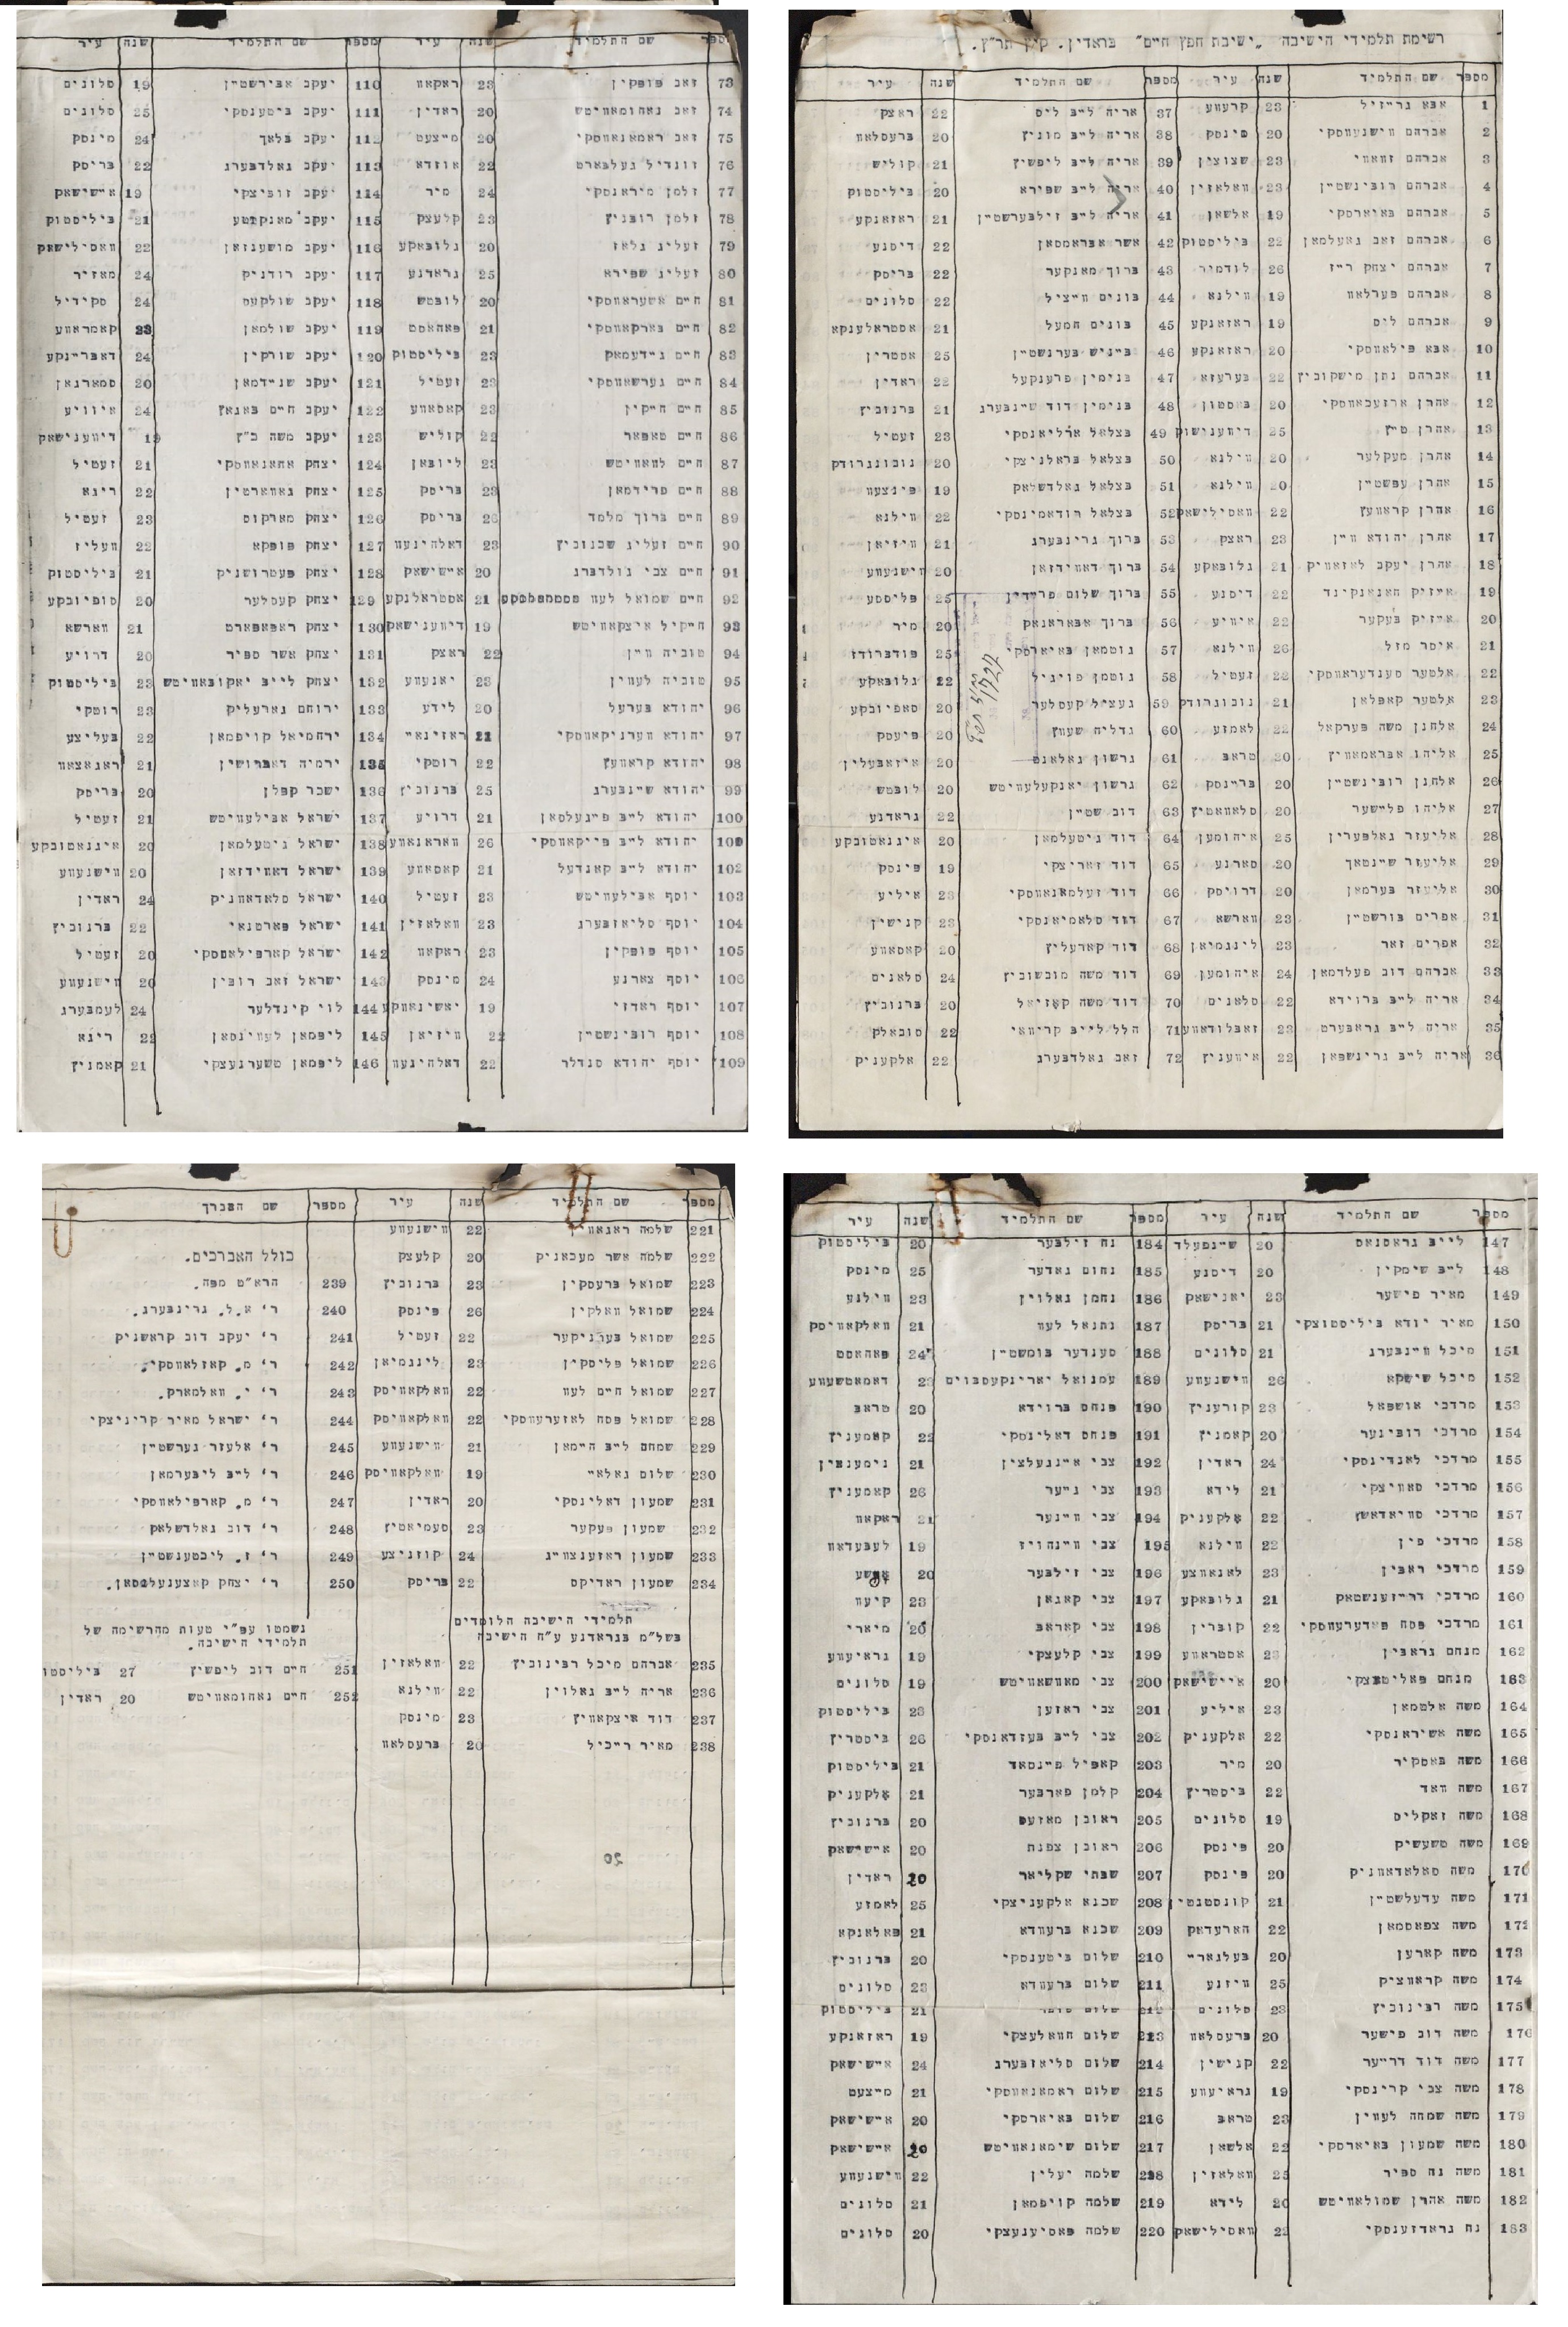 רשימת תלמידי הישיבה "ישיבת חפץ חיים" בראדין. קיץ תר"ץ.
מספר שם התלמיד שנה עיר מספר שם התלמיד שנה עיר
1 אבא גרייזיל 23 קרעווע 37 אריה לייב ליס 22 ראצק
2 אברהם ווישנעווסקי 20 פינסק 38 אריה לייב מוניץ 20 ברעסלאוו
3 אברהם זוואווי 23 שצוצין 39 אריה לייב ליפשיץ 21 קוליש
4 אברהם רובינשטיין 23 וואלאזין 40 אריה לייב שפירא 20 ביליסטוק
5 אברהם באיארסקי 19 אלשאן 41 אריה לייב זילבערשטיין 21 ראזאנקע
6 אברהם זאב גאעלמאן 22 ביליסטוק 42 אשר אבראמסאן 22 דיסנע
7 אברהם יצחק רייז 26 לודמיר 43 ברוך מאנקער 22 בריסק
8 אברהם פערלאוו 19 ווילנא 44 בונים ווייציל 22 סלונים
9 אברהם ליס 19 ראזאנקע 45 בונים חמעל 21 אסטראלענקא
10 אבא פילאווסקי 20 ראזאנקע 46 בייניש בערנשטיין 25 אסטרין
11 אברהם נתן מישקוביץ 22 בערעזא 47 בנימין פרענקעל 22 ראדין
12 אהרן ארזעכאווסקי 20 באסטון 48 בנימין דוד שיינבערג 21 ברנוביץ
13 אהרן טייץ 25 דיווענישוק 49 בצלאל ארליאנסקי 23 זעטיל
14 אהרן מעקלער 20 ווילנא 50 בצלאל בראלניצקי 20 נובוגרודק
15 אהרן עפשטיין 20 ווילנא 51 בצלאל גאלדשלאק 19 פינצעוו
16 אהרן קראוועץ 22 וואסילישאק 52 בצלאל רודאמינסקי 22 ווילנא
17 אהרן יהודא וויין 23 ראצק 53 ברוך גרינבערג 21 ווידזיאן
18 אהרן יעקב לאזאוויק 21 גלובאקע 54 ברוך דאווידזאן 20 ווישנעווע
19 אייזיק האנאנקינד 22 דיסנע 55 ברוך שלום פריידין 25 פליססע
20 אייזיק בעקער 22 איוויע 56 ברוך אבאראנאק 20 מיר
21 איסר מזל 26 ווילנא 57 גוטמאן באיארסקי 25 פודברודז
22 אלטער סענדעראווסקי 22 זעטיל 58 גוטמן פוויגיל 22 גלובאקע
23 אלטער קאפלאן 21 נובוגרודק 59 געציל קעסלער 20 סאפיובקע
24 אלחנן משה פערקאל 22 לאמזע 60 גדליה שעווץ 20 פיעסק
25 אליהו אבראמאוויץ 20 טראב 61 גרשון גאלאנט 20 איזאבעלין
26 אלחנן רובינשטיין 20 בריינסק 62 גרשון יאנקעלעוויטש 20 לובטש
27 אליהו פליישער 20 סלאוואטיץ 63 דוב שטיין 22 גראדנע
28 אליעזר גאלפערין 25 איהומען 64 דוד גיטעלמאן 20 איגנאטובקע
29 אליעזר שיינטאך 20 סארנע 65 דוד זאריצקי 19 פינסק
30 אליעזר בערמאן 20 דרויסק 66 דוד זעלמאנאווסקי 23 איליע
31 אפרים בורשטיין 23 ווארשא 67 דוד סלאמיאנסקי 23 קנישין
32 אפרים זאר 23 לינגמיאן 68 דוד קארעליץ 20 קאסאווע
33 אברהם דוב פעלדמאן 24 איהומען 69 דוד משה מובשוביץ 24 סלאנים
34 אריה לייב ברוידא 22 סלאנים 70 דוד משה קאזיאל 20 ברנוביץ
35 אריה לייב גראבערט 23 זאבלודאווע 71 הלל לייב קריוואי 22 סובאלק
36 אריה לייב גרינשפאן 22 איוועניץ 72 זאב גאלדבערג 22 אלקעניק
מספר שם התלמיד שנה עיר מספר שם התלמיד שנה עיר
73 זאב פופקין 23 ראקאוו 110 יעקב אבירשטיין 19 סלונים
74 זאב נאהומאוויטש 20 ראדין 111 יעקב ביטענסקי 25 סלונים
75 זאב ראמאנאווסקי 20 מייצעט 112 יעקב בלאך 24 מינסק
76 זונדיל געלבארט 22 אוזדא 113 יעקב גאלדבערג 22 בריסק
77 זלמן מיראנסקי 24 מיר 114 יעקב זוביצקי 19 איישישאק
78 זלמן רובניץ 23 קלעצק 115 יעקב מאנקוטע 21 ביליסטוק
79 זעליג גלאז 20 גלובאקע 116 יעקב מושענזאן 22 וואסילישאק
80 זעליג שפירא 25 גראדנע 117 יעקב רודניק 24 מאזיר
81 חיים אשעראווסקי 20 לובטש 118 יעקב שולקעס 24 סקידיל
82 חיים בארקאווסקי 21 פאהאסט 119 יעקב שולמאן 23 קאמראווע
83 חיים ניידעמאק 23 ביליסטוק 120 יעקב שורקין 24 דאברייניקע
84 חיים גערשאווסקי 23 זעטיל 121 יעקב שניידמאן 20 סמארגאן
85 חיים חייקין 23 קאסאווע 122 יעקב חיים באנאץ 24 איוויע
86 חיים טאפאר 22 קוליש 123 יעקב משה כ"ץ 19 דיווענישאק
87 חיים לוואוויטש 23 ליובאן 124 יצחק אחאנאווסקי 21 זעטיל
88 חיים פרידמאן 23 בריסק 125 יצחק גאווארטין 22 ריגא
89 חיים ברוך מלמד 26 בריסק 126 יצחק מארקוס 23 זעטיל
90 חיים זעליג שכנוביץ 23 דאלהינעוו 127 יצחק פופקא 22 וועליז
91 חיים צבי גולדברג 20 איישישאק 128 יצחק פעטרושניק 21 ביליסטוק
92 חיים שמואל לעוו 21 אסטראלענקע 129 יצחק קעסלער 20 סופיובקע
93 חייקיל איצקאוויטש 19 דיווענישאק 130 יצחק ראפאפארט 21 ווארשא
94 טוביה וויין 22 ראצק 131 יצחק אשר ספיר 20 דרויע
95 טוביה לעווין 23 יאנעווע 132 יצחק לייב יאקובאוויטש 23 ביליסטוק
96 יהודא בערעל 20 לידע 133 ירוחם גארעליק 23 רוטקי
97 יהודא ווערניקאווסקי 21 ראזינאיי 134 ירחמיאל קויפמאן 22 בעליצע
98 יהודא קראוועץ 22 רוטקי 135 ירמיה דאברושין 21 ראגאצאוו
99 יהודא שיינבערג 25 ברנוביץ 136 ישכר קפלן 20 בריסק
100 יהודא לייב פייגעלסאן 21 דרויע 137 ישראל אבילעוויטש 21 זעטיל
101 יהודא לייב פייקאווסקי 26 וואראנאווע 138 ישראל גיטעלמאן 20 איגנאטובקע
102 יהודא לייב קאנדעל 21 קאסאווע 139 ישראל דאווידזאן 20 ווישנעווע
103 יוסף אבילעוויטש 23 זעטיל 140 ישראל סלאדאווניק 24 ראדין
104 יוסף סליאזבערג 23 וואלאזין 141 ישראל פארטנאי 22 ברנוביץ
105 יוסף פופקין 23 ראקאוו 142 ישראל קארפילאפסקי 20 זעטיל
106 יוסף צארנע 24 מינסק 143 ישראל זאב רובין 20 ווישנעווע
107 יוסף ראדזי 19 יאשינאווקע 144 לוי קינדלער 24 לעמבערג
108 יוסף רובינשטיין 22 ווידזיאן 145 ליפמאן לעווינסאן 22 ריגא
109 יוסף יהודא סנדלר 22 דאלהינעוו 146 ליפמאן טשערנעצקי 21 קאמניץ
מספר שם התלמיד שנה עיר מספר שם התלמיד שנה עיר
147 לייב גראסנאס 20 שיינפעלד 184 נח זילבער 20 ביליסטוק
148 לייב שימקין 20 דיסנע 185 נחום גאדער 25 מינסק
149 מאיר פישער 23 יאנישאק 186 נחמן גאלוין 23 ווילנע
150 מאיר יודא ביליסטוצקי 21 בריסק 187 נתנאל לעוו 21 וואלקאוויסק
151 מיכל וויינבערג 21 סלונים 188 סענדער בומשטיין 24 פאהאסט
152 מיכל שישקא 26 ווישנעווע 189 עמנואל יארינקעסבוים 23 דאמאטשעווע
153 מרדכי אושפאל 23 קורעניץ 190 פנחס ברוידא 20 טראב
154 מרדכי דובינער 20 קאמניץ 191 פנחס דאלינסקי 22 קאמעניץ
155 מרדכי לאנדינסקי 24 ראדין 192 צבי אייגנעלצין 21 נימענצין
156 מרדכי סאוויצקי 21 לידא 193 צבי גייער 26 קאמעניץ
157 מרדכי סוויאדאשץ 22 אלקעניק 194 צבי ווינער 21 ראקאוו
158 מרדכי פין 22 ווילנא 195 צבי ווינהויז 19 לעבעדאוו
159 מרדכי ראבין 23 לאנאווצע 196 צבי זילבער 20
160 מרדכי דרייזענשטאק 21 גלובאקע 197 צבי קאגאן 23 קיעוו
161 מרדכי פסח פאדערעווסקי 22 קוברין 198 צבי קאראב 20 מיארי
162 מנחם גראבין 23 אסטראווע 199 צבי קלעצקי 19 גראיעווע
163 מנחם פאליטצקי 20 איישישאק 200 צבי מאוושאוויטש 19 סלונים
164 משה אלטמאן 23 איליע 201 צבי ראזען 23 ביליסטוק
165 משה אשיראנסקי 22 אלקעניק 202 צבי לייב בעזדאנסקי 26 ביסטריץ
166 משה באסקיר 20 מיר 203 קאפיל פיינסאד 21 ביליסטוק
167 משה וואד 22 ביסטריץ 204 קלמן פארבער 21 אלקעניק
168 משה זאקליס 19 סלונים 205 ראובן מאזעס 20 ברנוביץ
169 משה טשעשיק 20 פינסק 206 ראובן צפנת 20 איישישאק
170 משה סאלאדאווניק 20 פינסק 207 שבתי שקליאר 20 ראדין
171 משה עדעלשטיין 21 קונסטנטי 208 שכנא אלקעניצקי 25 לאמזע
172 משה צפאסמאן 22 הארעדאק 209 שכנא ברעוודא 21 פאלאנקא
173 משה קארען 20 בעלגאריי 210 שלום ביטענסקי 20 ברנוביץ
174 משה קראווציק 25 וויזנע 211 שלום ברעוודא 23 סלונים
175 משה רבינוביץ 23 סלונים 212 שלום 21 ביליסטוק
176 משה דוב פישער 20 ברעסלאוו 213 שלום חוואלעצקי 19 ראזאנקע
177 משה דוד דרייער 22 קנישין 214 שלום סליאזבערג 24 איישישאק
178 משה צבי קרינסקי 19 גראיעווע 215 שלום ראמאנאווסקי 21 מייצעט
179 משה שמחה לעווין 23 טראב 216 שלום באיארסקי 20 איישישאק
180 משה שמעון באיארסקי 22 אלשאן 217 שלום שימאנאוויטש 20 איישישאק
181 משה נח ספיר 25 וואלאזין 218 שלמה יעלין 22 ווישנעווע
182 משה אהרן שמולאוויטש 20 לידא 219 שלמה קויפמאן 21 סלונים
183 נח גראדזענסקי 22 וואסילישאק 220 שלמה פאסיענעצקי 20 סלונים
מספר שם התלמיד שנה עיר מספר שם האברך
221 שלמה ראגאווין 22 ווישנעווע
222 שלמה אשר מעכאניק 20 קלעצק כולל האברכים.
223 שמואל ברעסקין 23 ברנוביץ 239 הרא"ט מפה.
224 שמואל וואלקין 26 פינסק 240 ר' א.ל. גרינבערג.
225 שמואל בערניקער 22 זעטיל 241 ר' יעקב דוב קראשניק
226 שמואל פליסקין 23 לינגמיאן 242 ר' מ. קאזלאווסקי.
227 שמואל חיים לעוו 22 וואלקאוויסק 243 ר' י. וואלמארק.
228 שמואל פסח לאזערעווסקי 22 וואלקאוויסק 244 ר' ישראל מאיר קריניצקי
229 שמחם לייב היימאן 21 ווישנעווע 245 ר' אלעזר גערשטיין
230 שלום גאלאיי 19 וואלקאוויסק 246 ר' לייב ליבערמאן
231 שמעון דאלינסקי 20 ראדין 247 ר' מ. קארפילאווסקי
232 שמעון פעקער 23 סעמיאטיץ 248 ר' דוב גאלדשלאק
233 שמעון ראזענצווייג 24 קוזניצע 249 ר' ז. ליכטענשטיין
234 שמעון ראדיקס 22 בריסק 250 ר' יצחק קאצענעלבסאן.
תלמידי הישיבה הלומדים
בשל"מ בגראדנע ע"ח הישיבה
נשמטו עפ"י טעות מהרשימה של
תלמידי הישיבה.
235 אברהם מיכל רבינוביץ 22 וואלאזין 251 חיים דוב ליפשיץ 27 ביליסטו
236 אריה לייב גאלוין 22 ווילנא 252 חיים נאהומאוויטש 20 ראדין
237 דוד איצקאוויץ 23 מינסק
238 מאיר רייכיל 20 ברעסלאוו
20